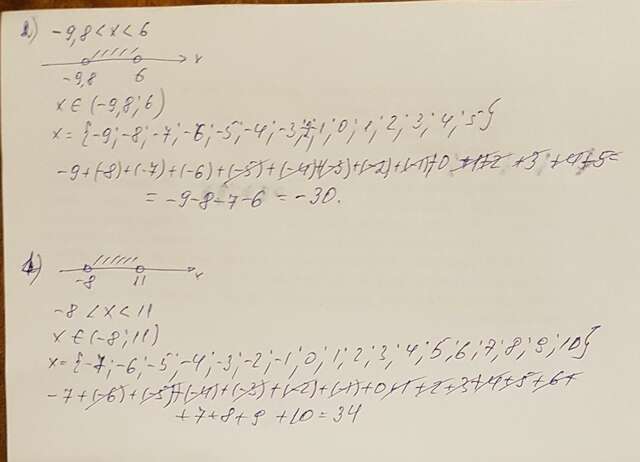 2) -9,8 < x < 6
-9,8 6 x
x ∈ (-9,8; 6)
x = {-9; -8; -7; -6; -5; -4; -3; -2; -1; 0; 1; 2; 3; 4; 5}
-9+(-8)+(-7)+(-6)+(-5)+(-4)+(-3)+(-2)+(-1)+0+1+2+3+4+5=
= -9-8-7-6 = -30.
-8 11 x
-8 < x < 11
x ∈ (-8; 11)
x = {-7; -6; -5; -4; -3; -2; -1; 0; 1; 2; 3; 4; 5; 6; 7; 8; 9; 10}
-7+(-6)+(-5)+(-4)+(-3)+(-2)+(-1)+0+1+2+3+4+5+6+
+7+8+9+10=34